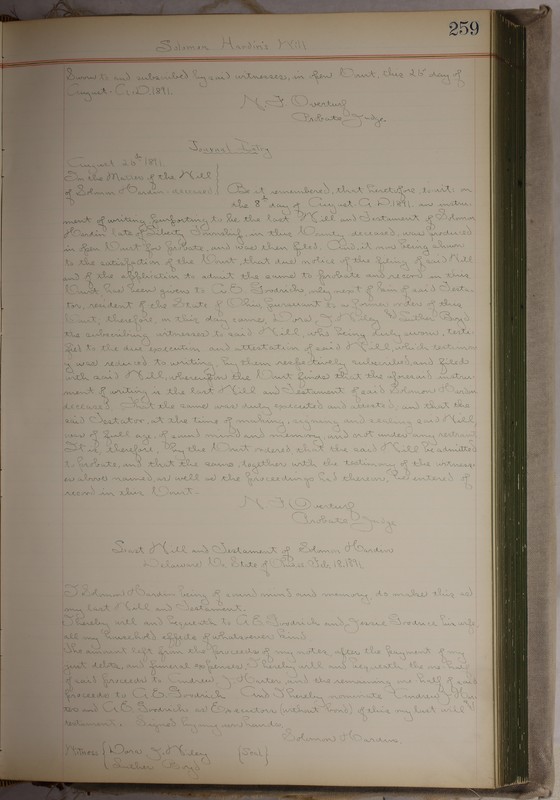 259
Solomon Hardin's Will
Sworn to and subscribed by said witnesses, in open Court, this 25 day of
August A.D. 1891.
N. F. Overturf
Probate Judge.
Journal Entry
August 25th 1891.
In the Matter of the Will
of Solomon Hardin deceased
Be it remembered, that heretofore to wit: on
the 8th day of August A.D. 1891 an instru-
ment of writing purporting to be the last Will and Testament of Solomon
Hardin late of Liberty Township in this County deceased, was produced
in open Court for probate, and was then filed. And, it now being shown
to the satisfaction of the Court, that due notice of the filing of said Will
and of the application to admit the same to probate and record in this
Court has been given to A. E. Goodrich next of kin of said Testa-
tor, resident of the State of Ohio pursuant to a former order of this
Court, therefore, on this day came Dora J. Wiley & Luther Boyd
the subscribing witnesses to said Will, who being duly sworn, testi-
fied to the due execution and attestation of said Will, which testimo-
ny was reduced to writing, by them respectively subscribed and filed
with said Will, whereupon the Court finds that the aforesaid instru-
ment of writing is the last Will and Testament of said Solomon Hardin
deceased, that the same was duly executed and attested, and that the
said Testator, at the time of making, signing and sealing said Will,
was of full age, of sound mind and memory, and not under any restraint
It is, therefore, by the Court ordered that the said Will be admitted
to probate, and that the same, together with the testimony of the witness-
es above named, as well as the proceedings had therein, be entered of
record in this Court.
N. F. Overturf
Probate Judge
Last Will and Testament of Solomon Hardin
Delaware Co. State of Ohio Feb. 18, 1891
I Solomon Hardin being of sound mind and memory, do make this as
my last Will and Testament.
I hereby will and bequeath to A. E. Goodrich and Goodrich his wife
all my household effects of whatsoever kind.
The amount left from the proceeds of my notes, after the payment of my
just debts, and funeral expenses, I hereby will and bequeath the one half
of said proceeds to Andrew J. and the remaining one half of said
proceeds to A. E. Goodrich. And I hereby nominate Andrew J.
and A. E. Goodrich as Executors (without bond) of this my last will &
testament. Signed by my own hands,
Solomon Hardin.
Witness Dora J. Wiley (Seal)
Luther Boyd